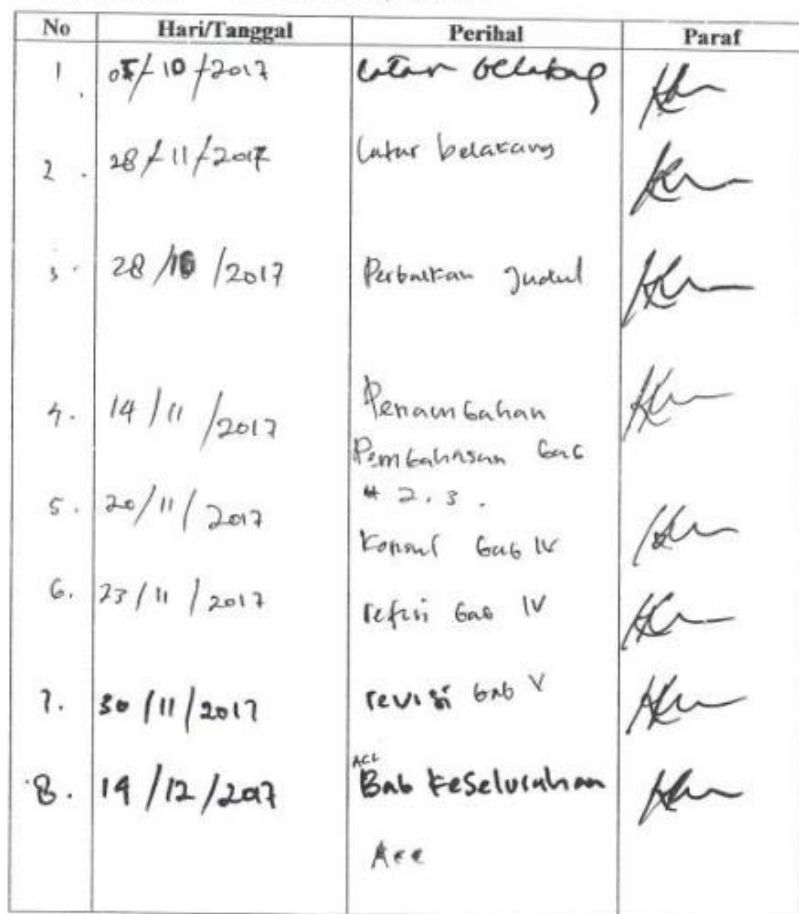 No Hari/Tanggal Perihal Paraf
1. 05/10/2017 Latar belakang
2. 28/11/2017 Latar belakang
3. 28/10/2017 Perbaikan Judul
4. 14/11/2017 Penambahan
Pembahasan bab
2.3.
5. 20/11/2017 Konsul bab IV
6. 23/11/2017 refisi bab IV
7. 30/11/2017 revisi bab V
ACC
8. 19/12/2017 Bab Keseluruhan
Acc